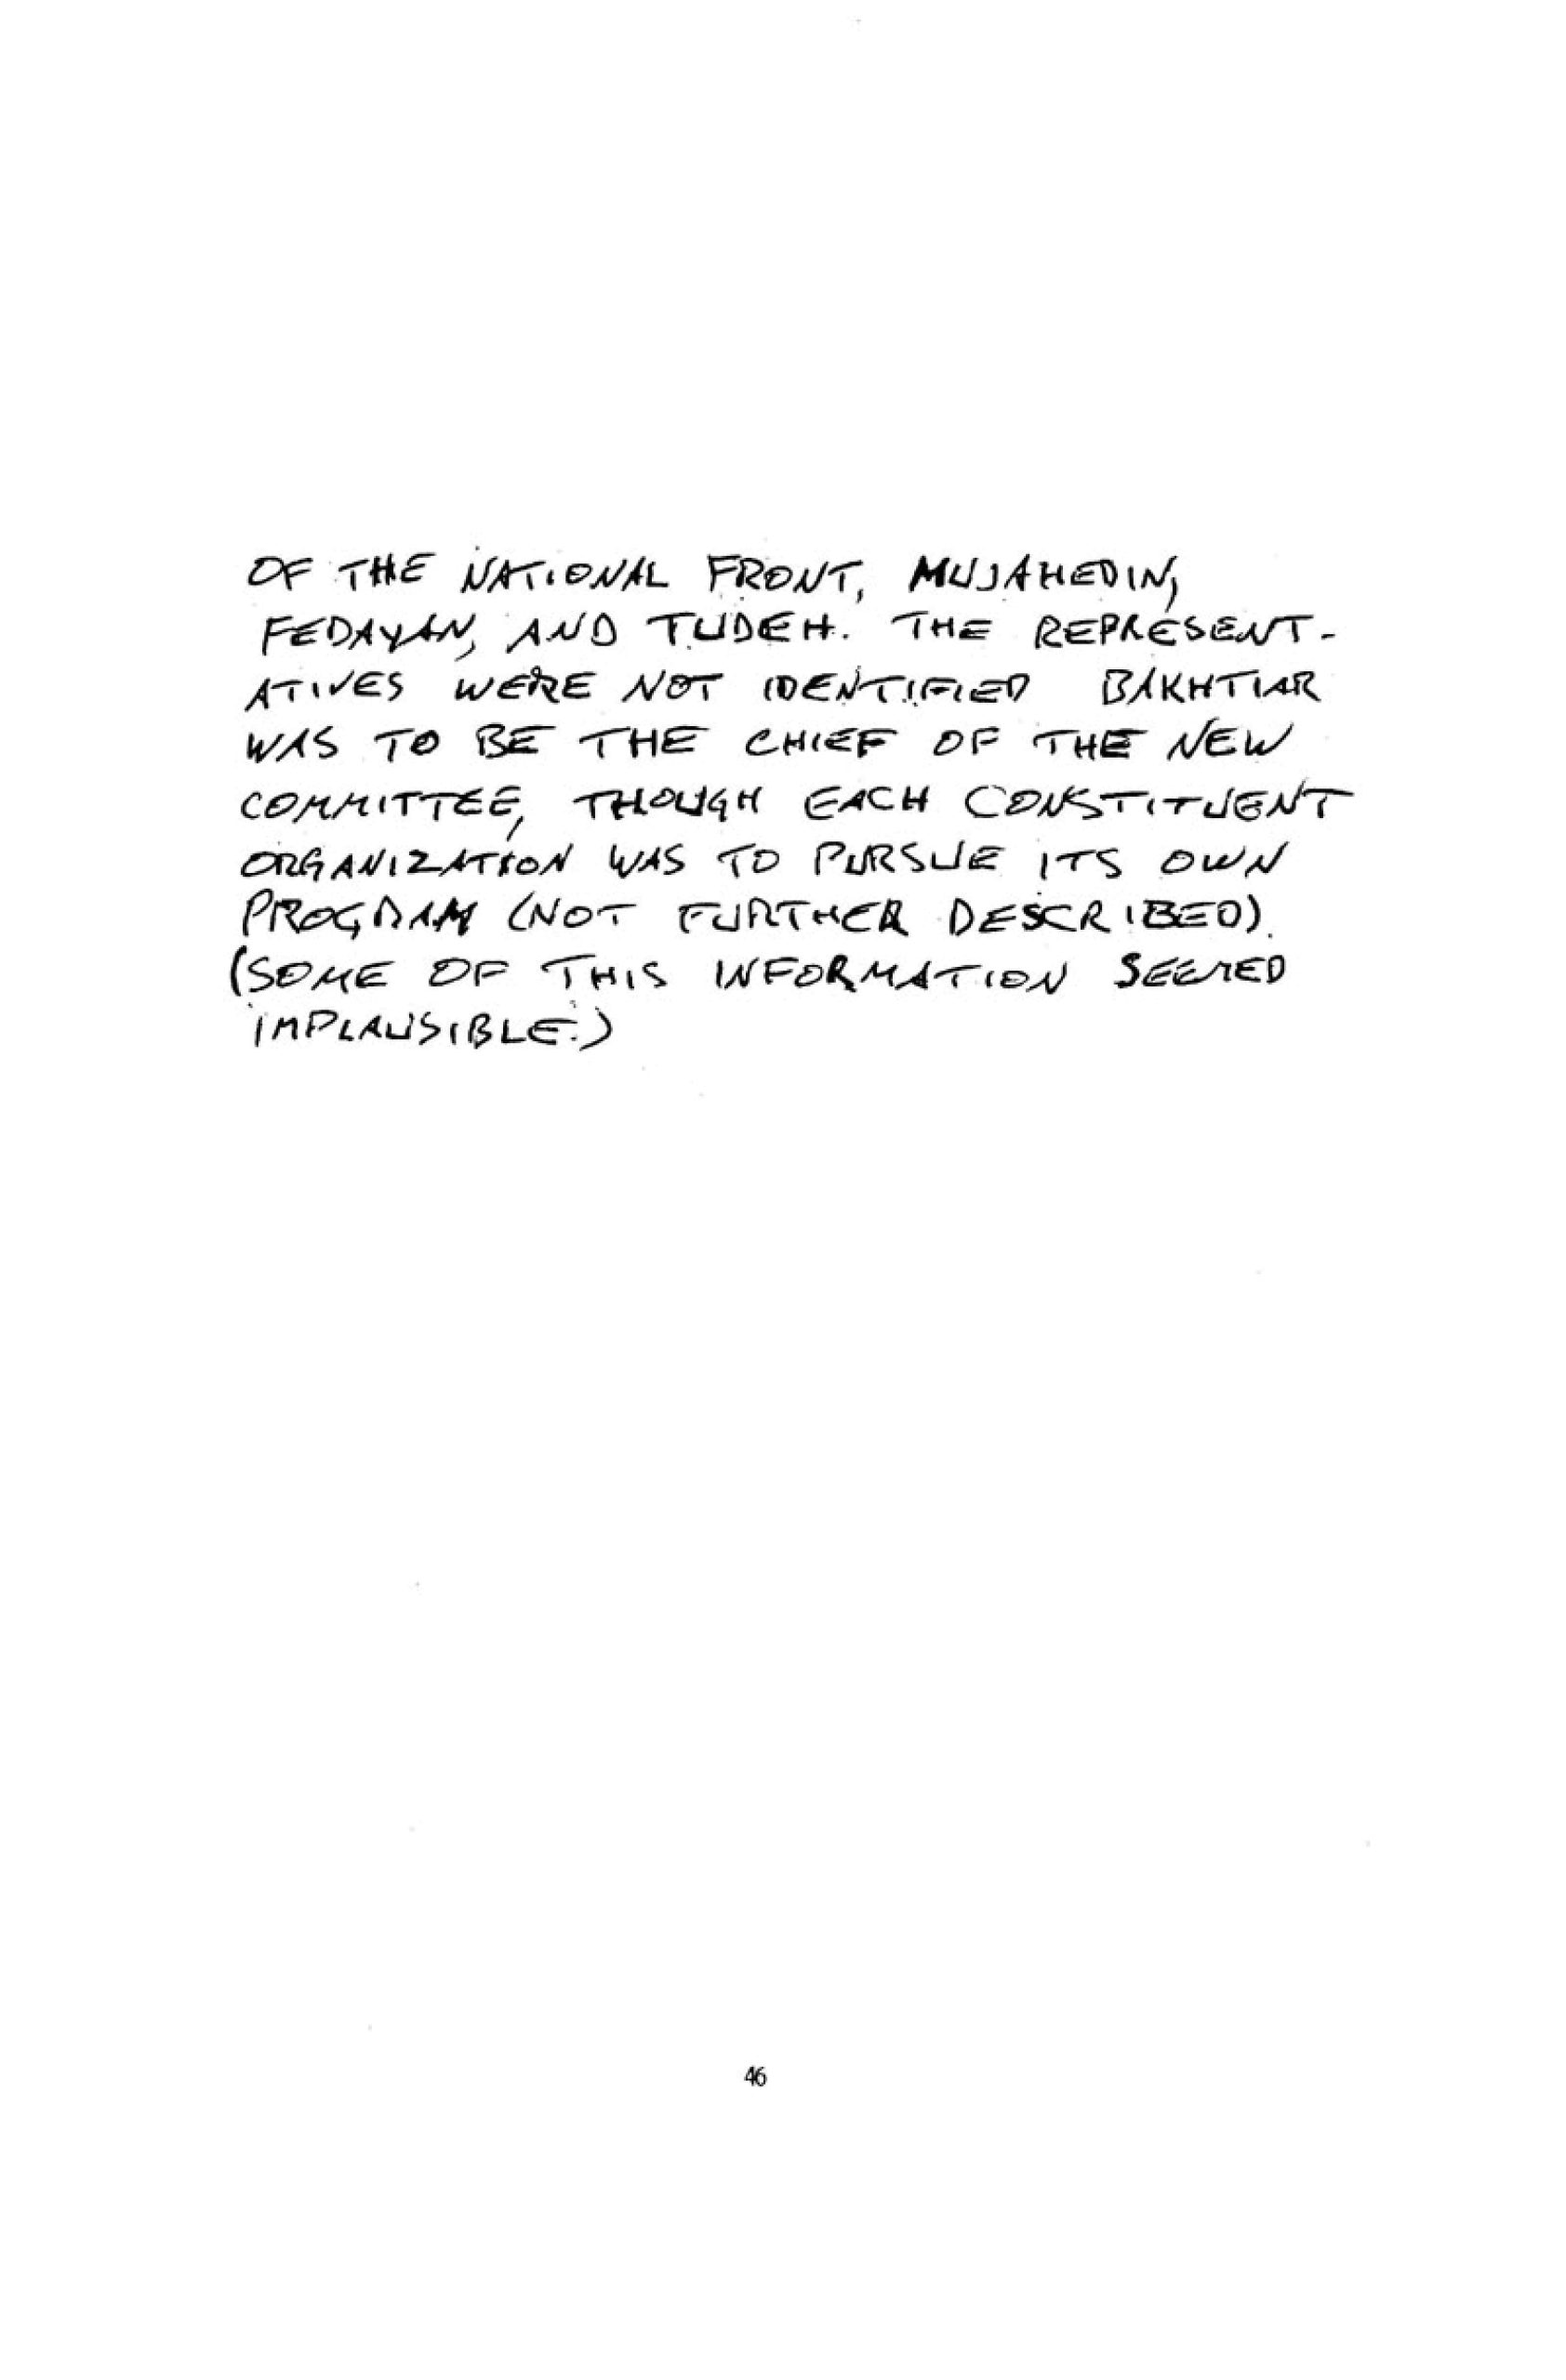 OF THE NATIONAL FRONT, MUJAHEDIN,
FEDAYAN, AND TUDEH. THE REPRESENT-
ATIVES WERE NOT IDENTIFIED BAKHTIAR
WAS TO BE THE CHIEF OF THE NEW
COMMITTEE, THOUGH EACH CONSTITUENT
ORGANIZATION WAS TO PURSUE ITS OWN
PROGRAM (NOT FURTHER DESCRIBED).
(SOME OF THIS INFORMATION SEEMED
IMPLAUSIBLE.)
46